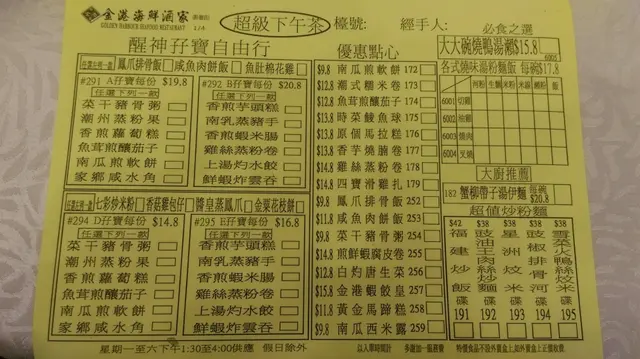 金港海鮮酒家
GOLDEN HARBOUR SEAFOOD RESTAURANT
超級下午茶 檯號: 經手人:
醒神孖寶自由行
任選此兩款 鳳爪排骨飯 咸魚肉餅飯 魚肚棉花雞
#291 A孖寶每份 $19.8
任選下列一款
菜干豬骨粥
潮州蒸粉果
香煎蘿蔔糕
魚茸煎釀茄子
南瓜煎軟餅
家鄉咸水角
#292 B孖寶每份 $20.8
任選下列一款
香煎芋頭糕
南乳蒸豬手
香煎蝦米腸
雞絲蒸粉卷
上湯灼水餃
鮮蝦炸雲吞
七彩炒米粉 香菇雞包仔 醬皇蒸鳳爪 金菜花枝餅
#294 D孖寶每份 $14.8
任選下列一款
菜干豬骨粥
潮州蒸粉果
香煎蘿蔔糕
魚茸煎釀茄子
南瓜煎軟餅
家鄉咸水角
#295 E孖寶每份 $16.8
任選下列一款
香煎芋頭糕
南乳蒸豬手
香煎蝦米腸
雞絲蒸粉卷
上湯灼水餃
鮮蝦炸雲吞
星期一至六下午1:30至4:00供應 假日除外
優惠點心
$9.8 南瓜煎軟餅 172
$12.8 潮式糯米卷 175
$12.8 魚茸煎釀茄子 174
$13.8 時菜鯪魚球 173
$13.8 原個馬拉糕 170
$13.8 香芋燒腩卷 177
$14.8 雞絲蒸粉卷 178
$14.8 四寶滑雞扎 179
$9.8 鳳爪排骨飯 252
$11.8 咸魚肉餅飯 253
$9.8 菜干豬骨粥 254
$14.8 煎鮮蝦腐皮卷 255
$12.8 白灼唐生菜 256
$15.8 金港蝦餃皇 257
$11.8 黃金馬蹄條 258
$9.8 南瓜西米露 259
以入單時間計 多謝加一服務費
必食之選
大大碗燒鴨湯瀨$15.8
6005
各式燒味湯粉麵飯 每碗$17.8
河粉 生麵 米粉 米線 瀨粉 飯
6001 切雞
6002 油雞
6003 燒肉
6004 叉燒
大廚推薦
182 蟹柳帶子湯伊麵 每碗 $20.8
超值炒粉麵
$42 福建炒飯 碟 191
$38 豉油王肉絲炒麵 碟 192
$38 星洲炒米 碟 193
$38 豉椒排骨河 碟 194
$38 雪菜火鴨絲炆米 碟 195
特價食品不設外賣 如外賣上正價收費